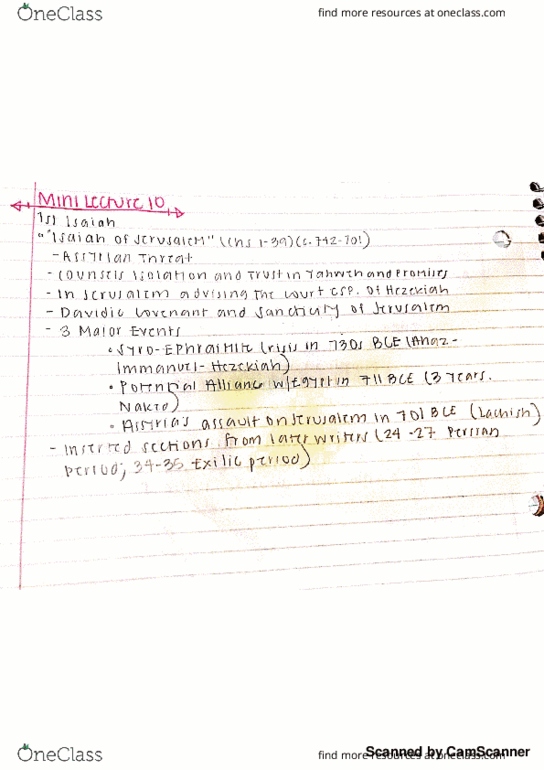 OneClass
find more resources at oneclass.com
Mini Lecture 10
1st Isaiah
"Isaiah of Jerusalem" (chs 1-39)(c. 742-701)
- Assyrian Threat
- counsels isolation and trust in Yahweh and Promises
- In Jerusalem advising the court esp. of Hezekiah
- Davidic Covenant and Sanctity of Jerusalem
- 3 Major Events
• Syro-Ephraimite Crisis in 730s BCE (Ahaz-
Immanuel- Hezekiah)
• Potential Alliance w/Egypt in 711 BCE (3 Years.
Naked)
• Assyria's assault on Jerusalem in 701 BCE (Lachish)
- inserted sections from later writers (24-27 Persian
period; 34-35 Exilic period)
OneClass
find more resources at oneclass.com
Scanned by CamScanner